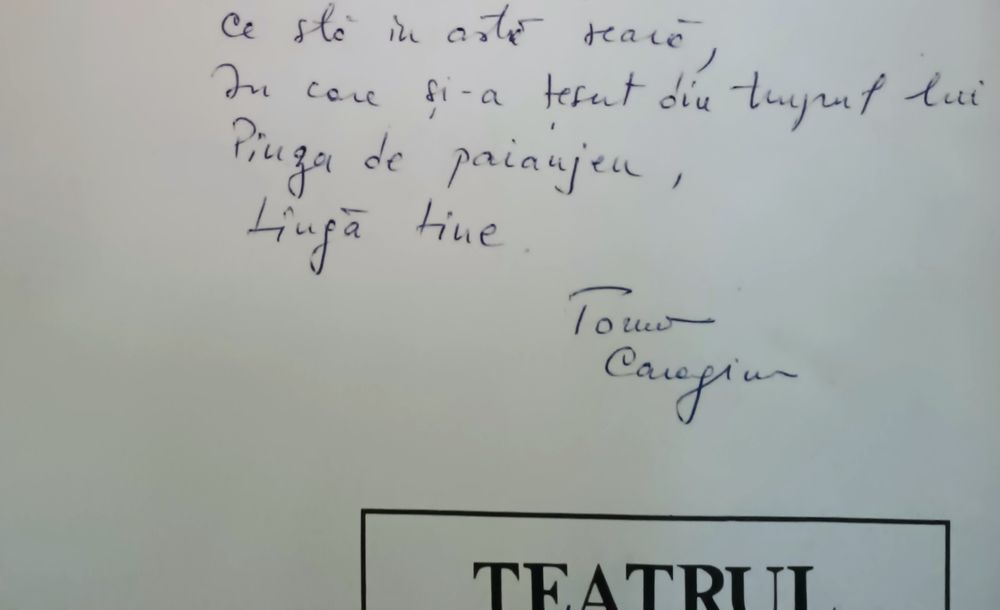 Ce stă în astă seară,
In care și-a țesut din trupul lui
Pînza de paianjen,
Lîngă tine.
Toma
Caragiu
TEATRUL